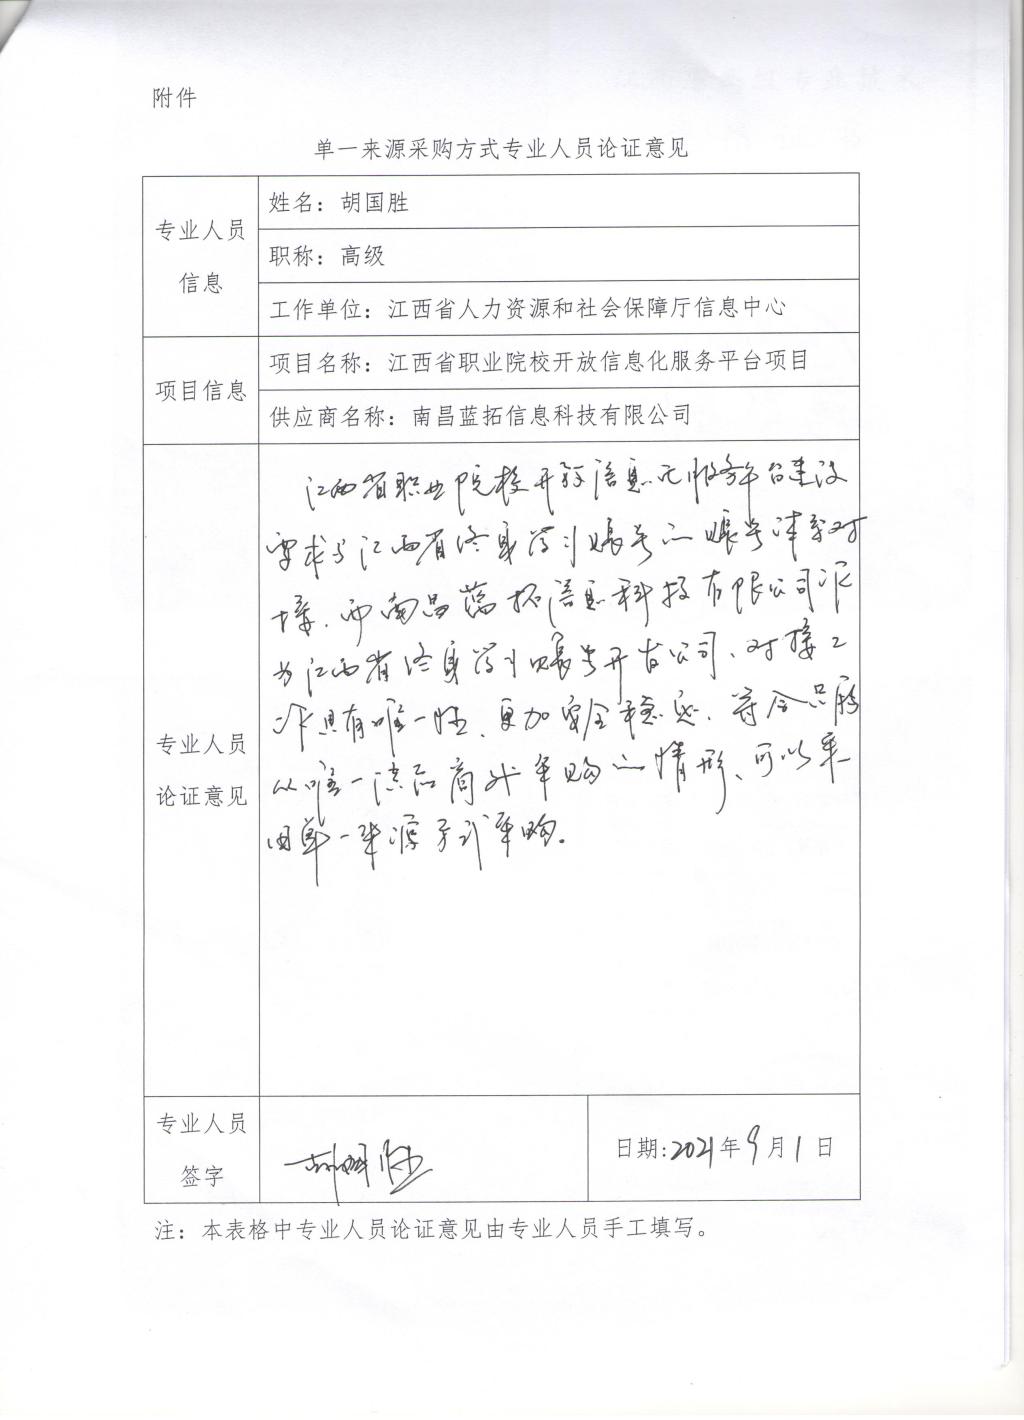 附件
单一来源采购方式专业人员论证意见
专业人员
信息
姓名：胡国胜
职称：高级
工作单位：江西省人力资源和社会保障厅信息中心
项目信息
项目名称：江西省职业院校开放信息化服务平台项目
供应商名称：南昌蓝拓信息科技有限公司
专业人员
论证意见
江西省职业院校开放信息化服务平台建设
要求与江西省终身学习账号的账号体系对
接，而南昌蓝拓信息科技有限公司作
为江西省终身学习账号开发公司，对接工
作具有唯一性，更加安全稳定，符合只能
从唯一供应商处采购的情形，可以采
用单一来源方式采购。
专业人员
签字
胡国胜
日期:2021年9月1日
注：本表格中专业人员论证意见由专业人员手工填写。